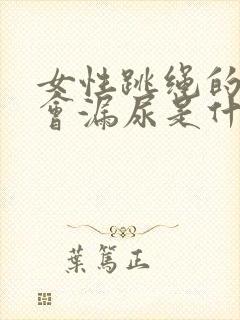 女性跳绳的
會漏尿是什
葉篤正